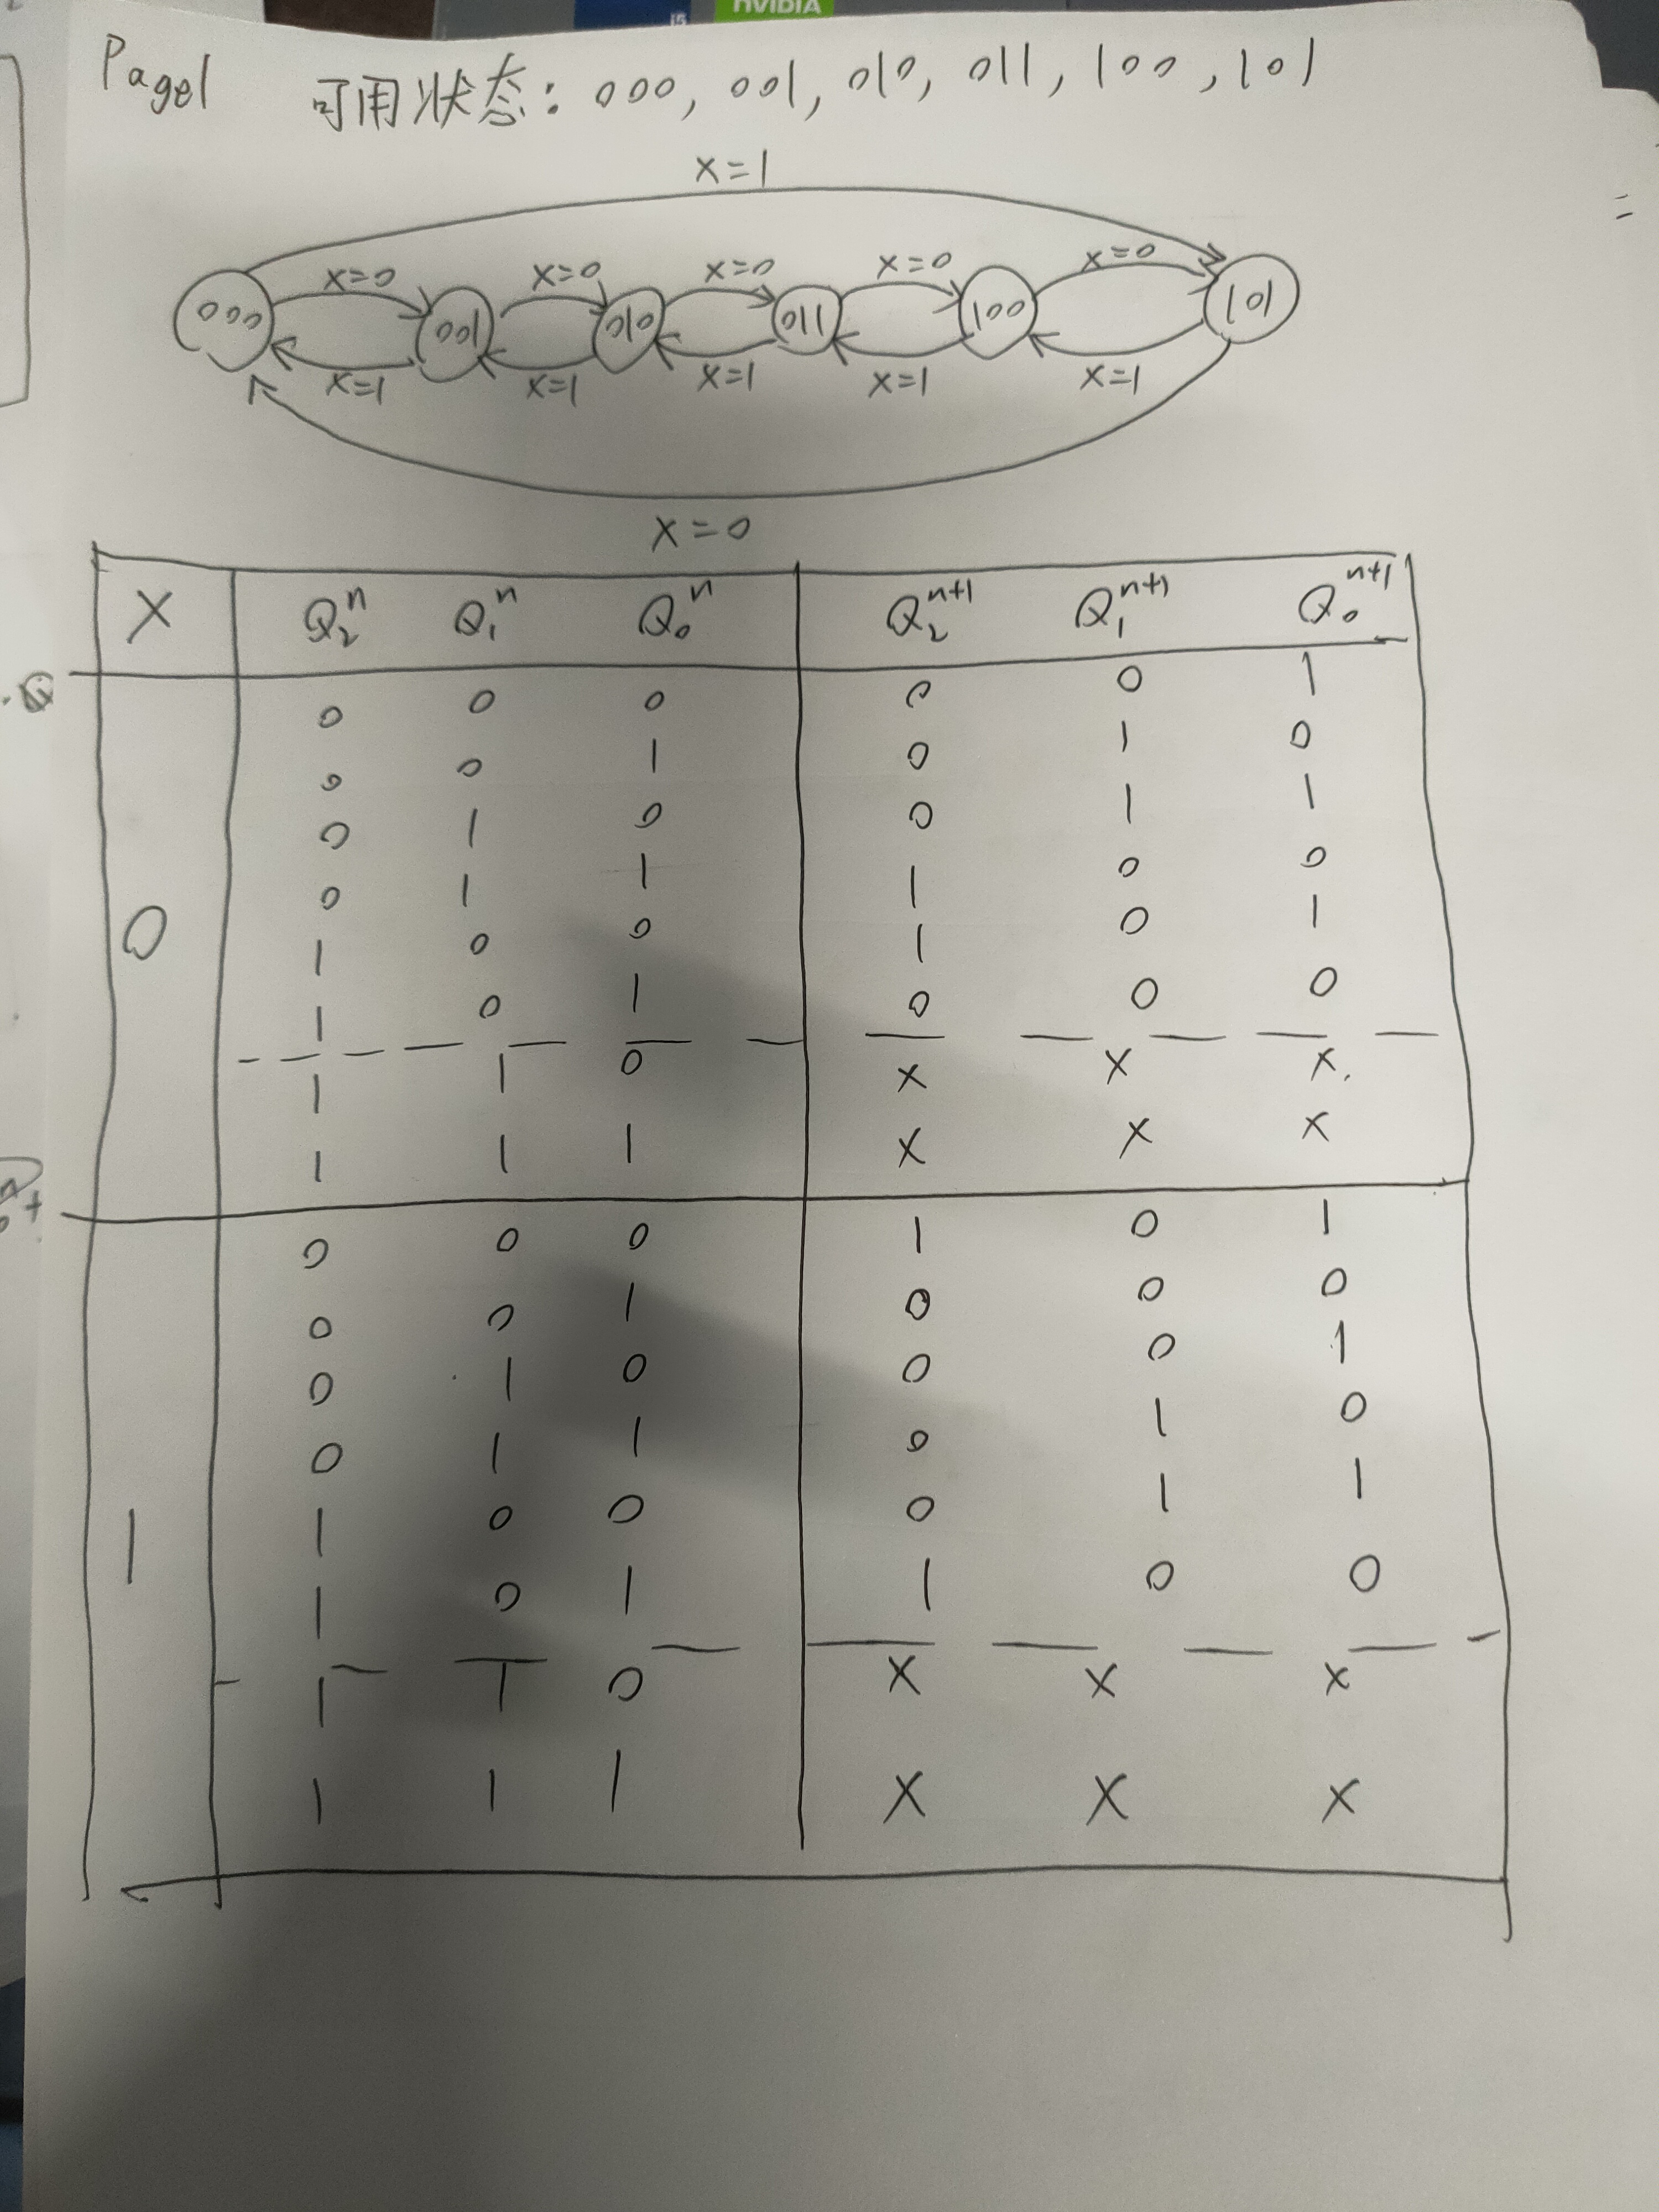 NVIDIA
i5
Page1 可用状态: 000, 001, 010, 011, 100, 101
x=1
x=0 x=0 x=0 x=0 x=0
000 001 010 011 100 101
x=1 x=1 x=1 x=1 x=1
x=0
X Q₂ⁿ Q₁ⁿ Q₀ⁿ Q₂ⁿ⁺¹ Q₁ⁿ⁺¹ Q₀ⁿ⁺¹
0 0 0 0 0 1
0 0 1 0 1 0
0 1 0 0 1 1
0 1 1 1 0 0
0
1 0 0 1 0 1
1 0 1 0 0 0
1 1 0 x x x.
1 1 1 x x x
0 0 0 1 0 1
0 0 1 0 0 0
0 1 0 0 0 1
0 1 1 0 1 0
1
1 0 0 0 1 1
1 0 1 1 0 0
1 1 0 x x x
1 1 1 x x x